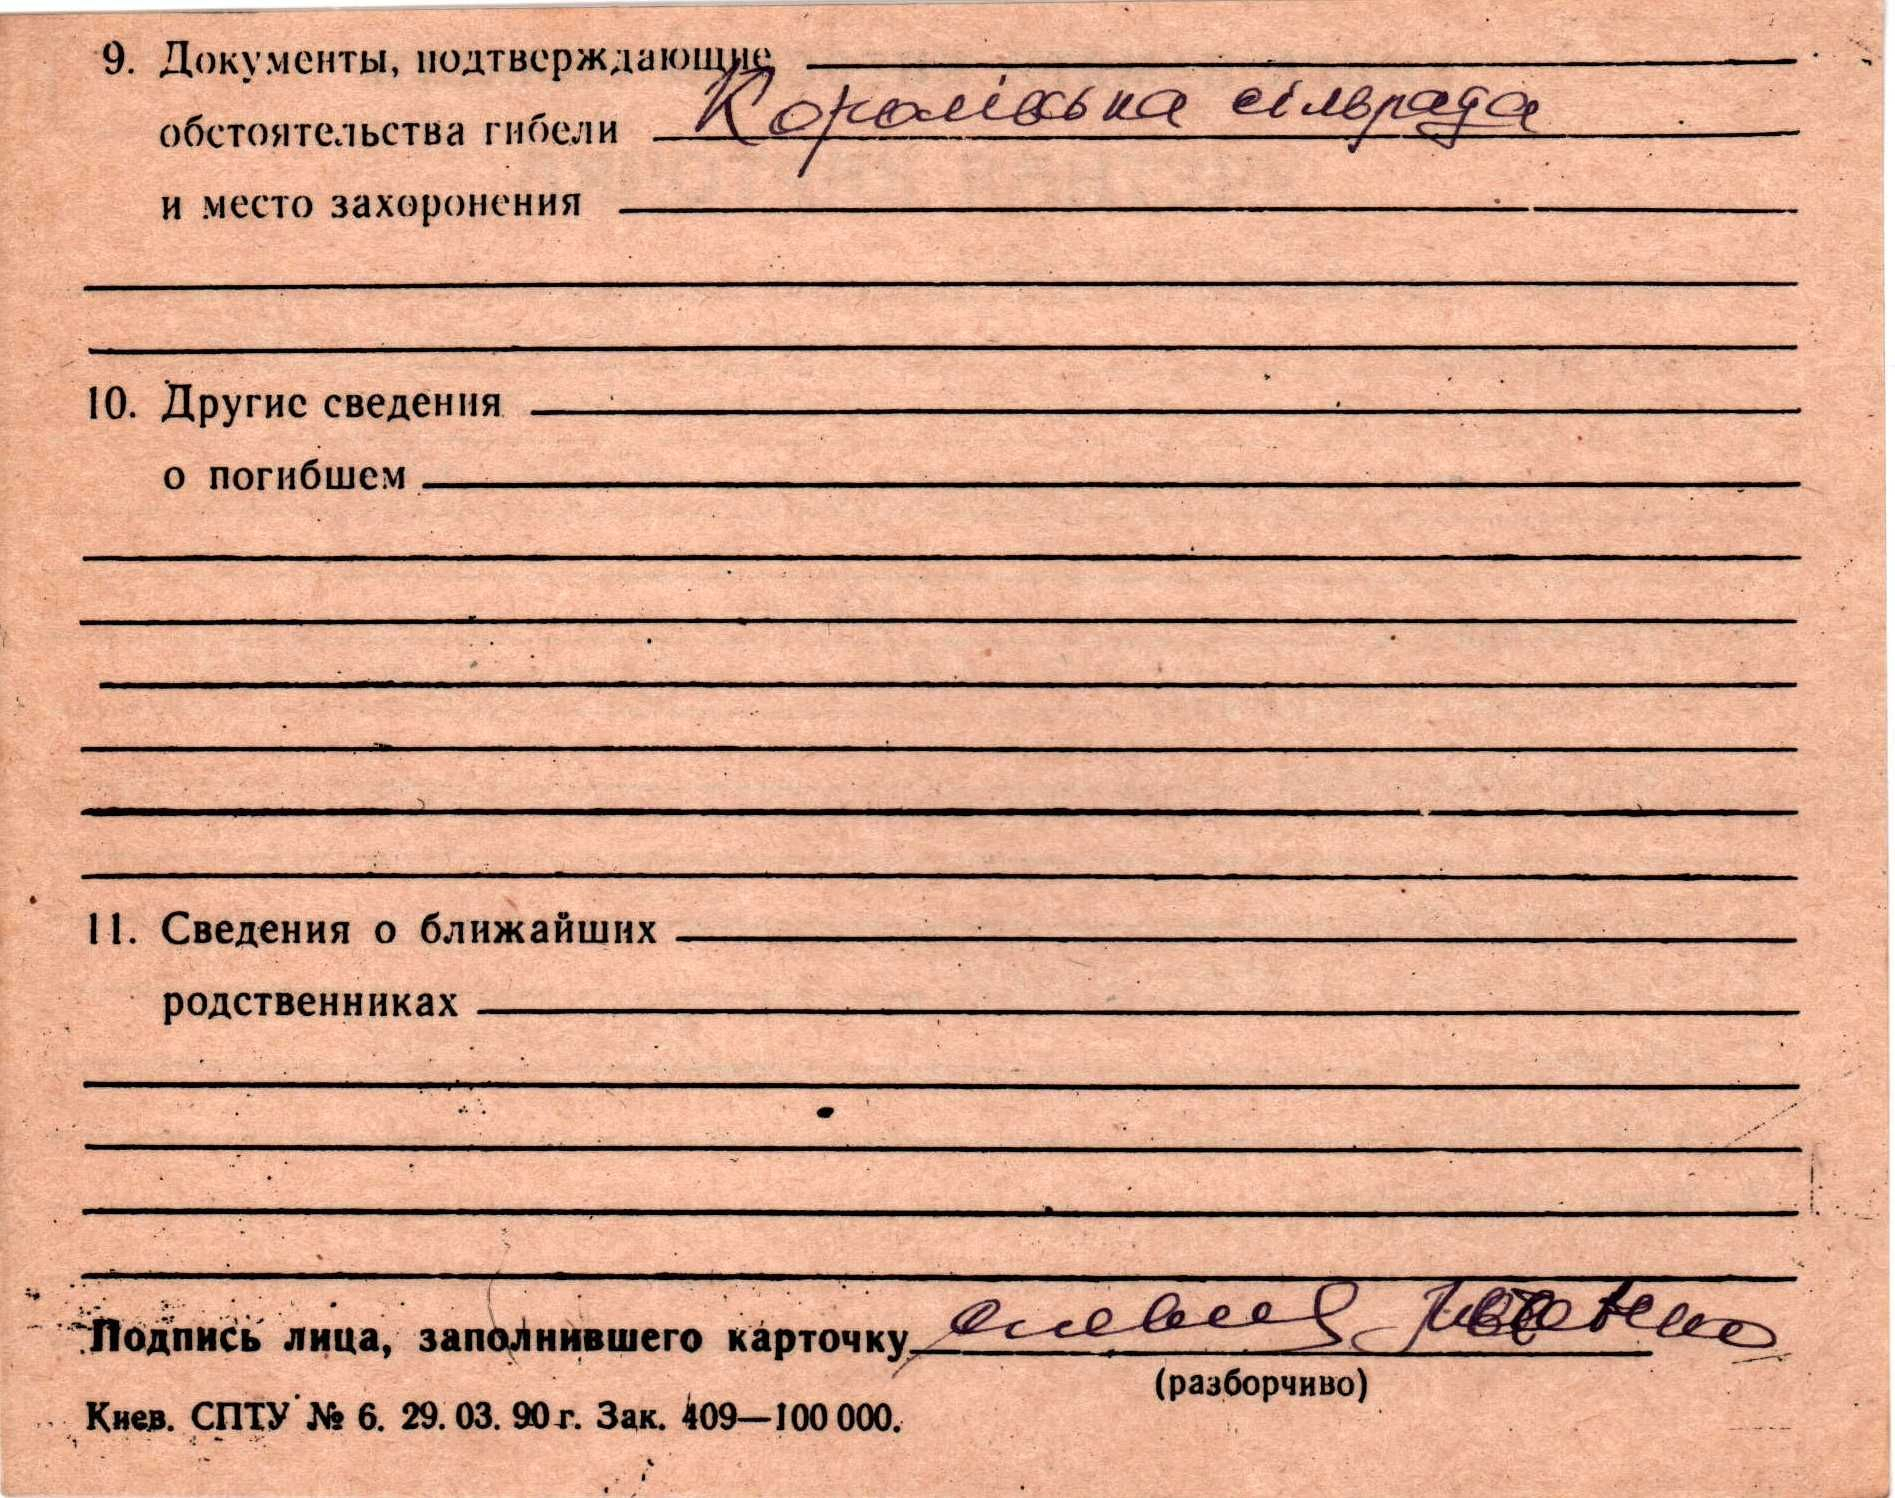 9. Документы, подтверждающие
Королівська сільрада
обстоятельства гибели
и место захоронения
10. Другие сведения
о погибшем
11. Сведения о ближайших
родственниках
Подпись лица, заполнившего карточку
(разборчиво)
Киев. СПТУ № 6. 29. 03. 90 г. Зак. 409—100 000.